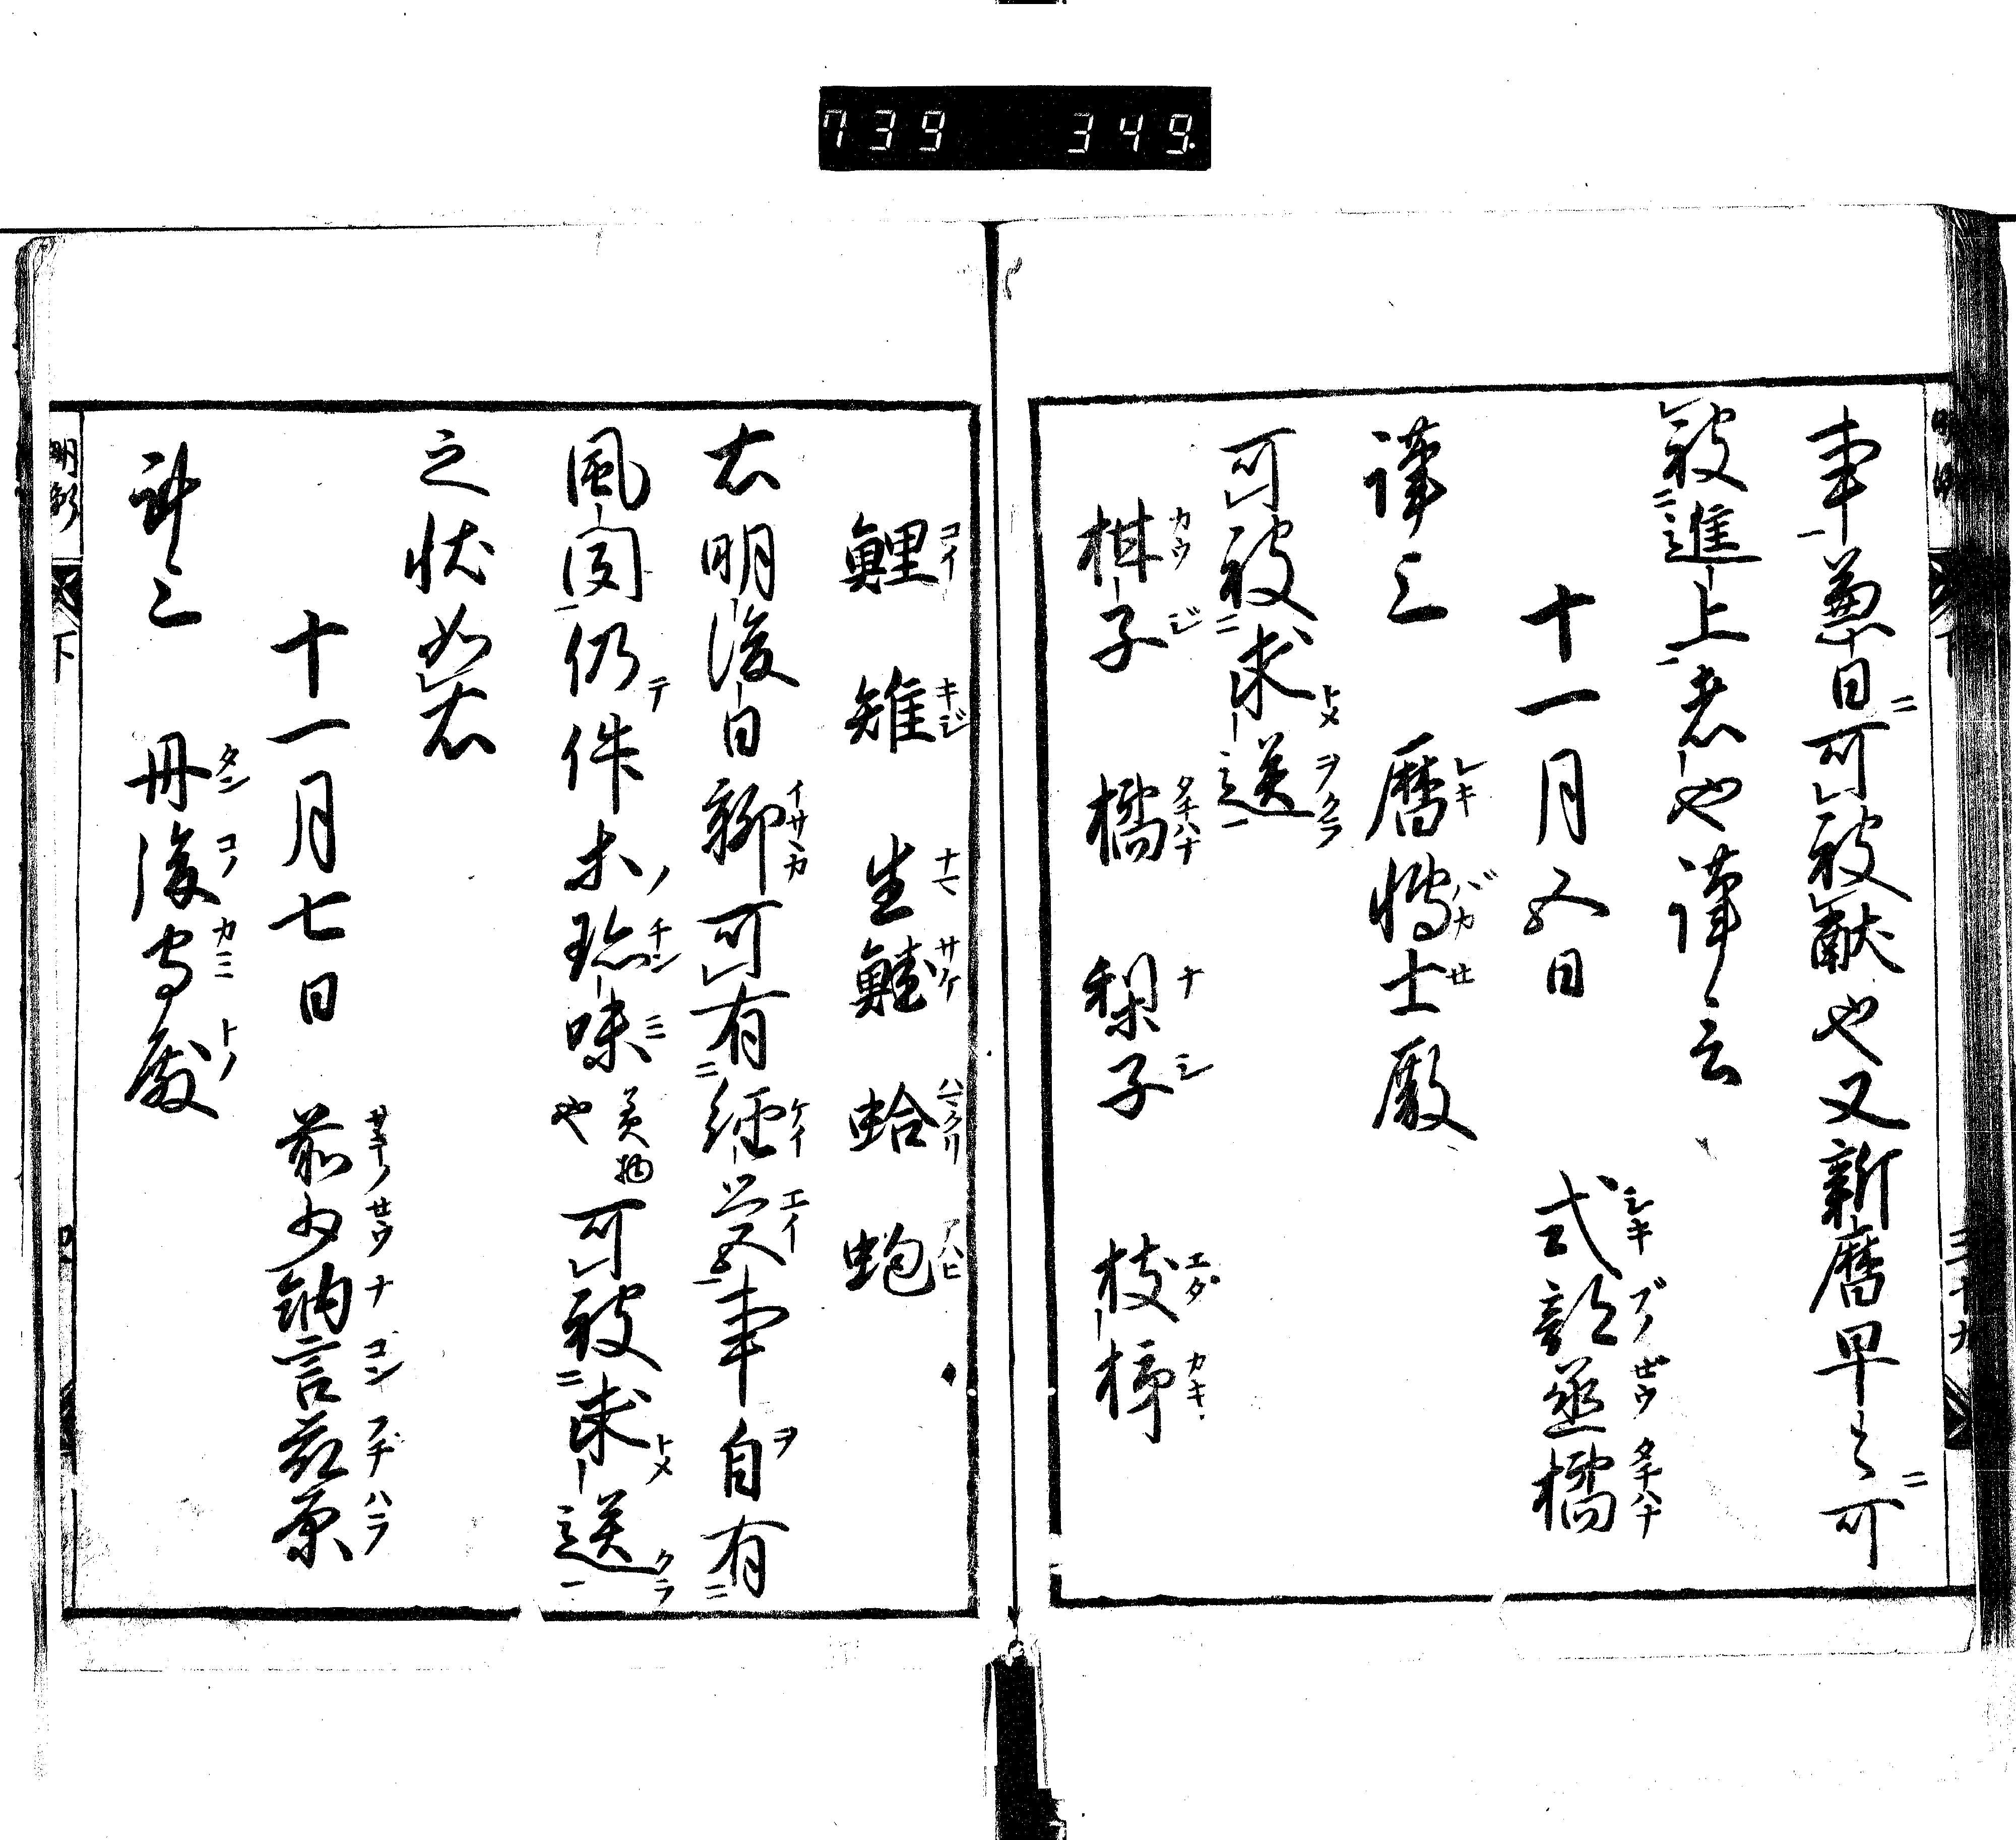 739 349
事兼日可被献也又新暦早々可
被進上者也謹言
十一月五日 式部丞橘
謹上 暦博士殿
可被求送
柑子 橘 梨子 枝柿
鯉 雉 生鮭 蛤 蚫
右明後日聊可有経営事自有
風聞仍件等珍味美物也可被求送
之状如右
十一月七日 前少納言藤原
謹上 丹後守殿
明衡 下
三十九